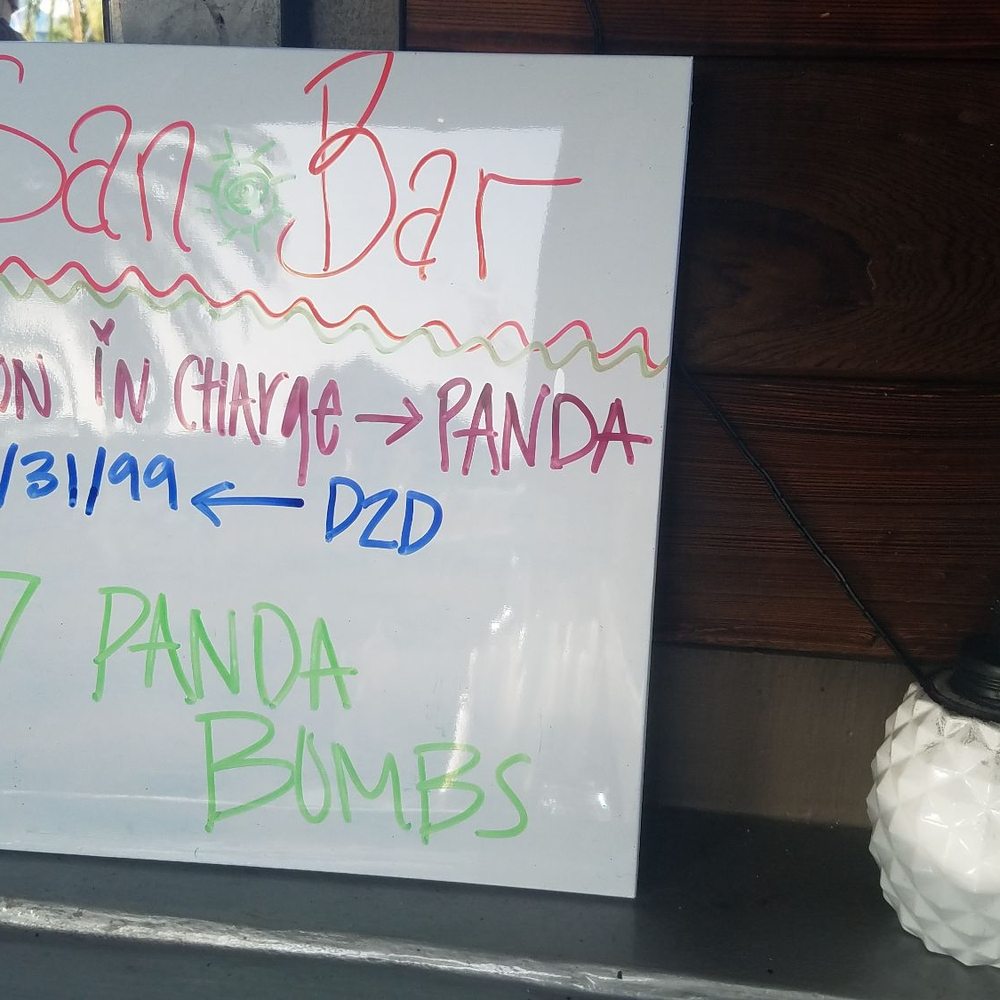 San Bar
ON iN CHArgE → PANDA
/31/99 ← D2D
7 PANDA
BOMBS